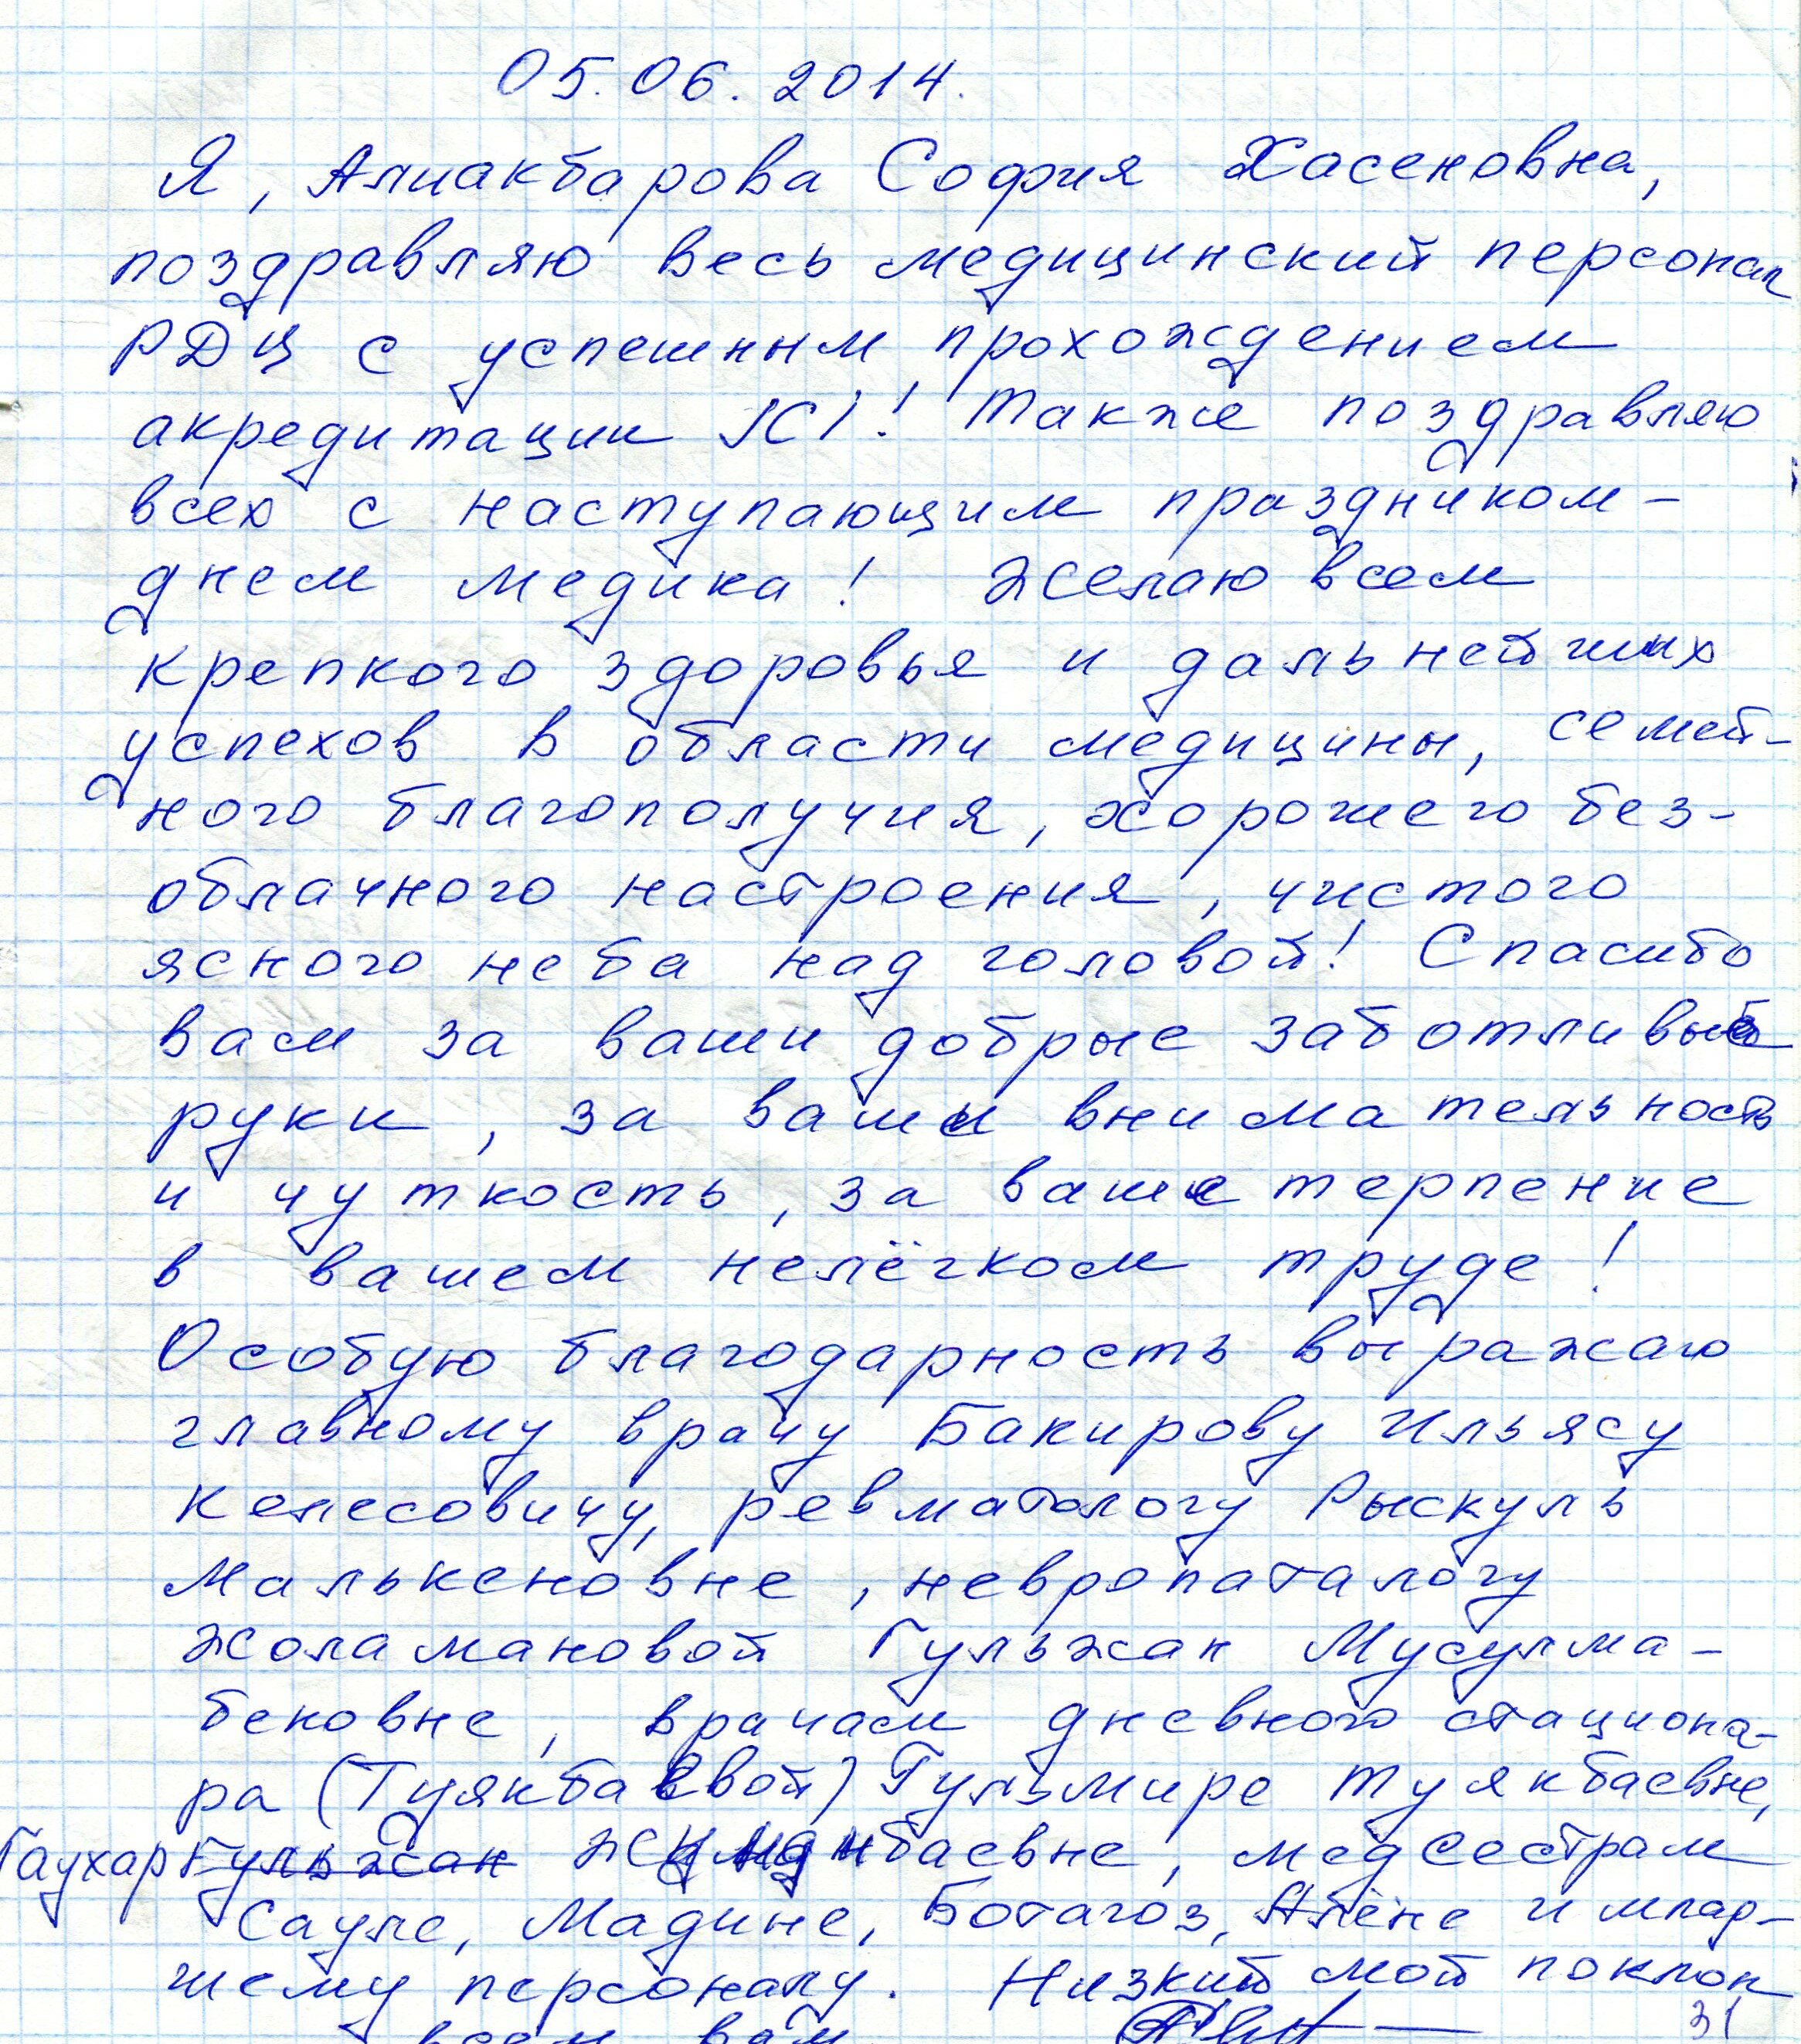 05.06.2014.
Я, Алиакбарова София Хасеновна,
поздравляю весь медицинский персонал
РДЦ с успешным прохождением
акредитации JCI! Также поздравляю
всех с наступающим праздником -
днем медика! Желаю всем
крепкого здоровья и дальнейших
успехов в области медицины, семей-
ного благополучия, хорошего без-
облачного настроения, чистого
ясного неба над головой! Спасибо
вам за ваши добрые заботливые
руки, за ваши внимательность
и чуткость, за ваше терпение
в вашем нелёгком труде!
Особую благодарность выражаю
главному врачу Бакирову Ильясу
Келесовичу, ревматологу Рыскуль
Малькеновне, невропаталогу
Жоламановой Гульжан Мусулма-
бековне, врачам дневного стациона-
ра (Туякбаевой) Гульмире Туякбаевне,
Гаухар Гульжан медсестрам
Сауле, Мадине, Ботагоз, Алёне и млад-
шему персоналу. Низкий мой поклон
всем вам
31